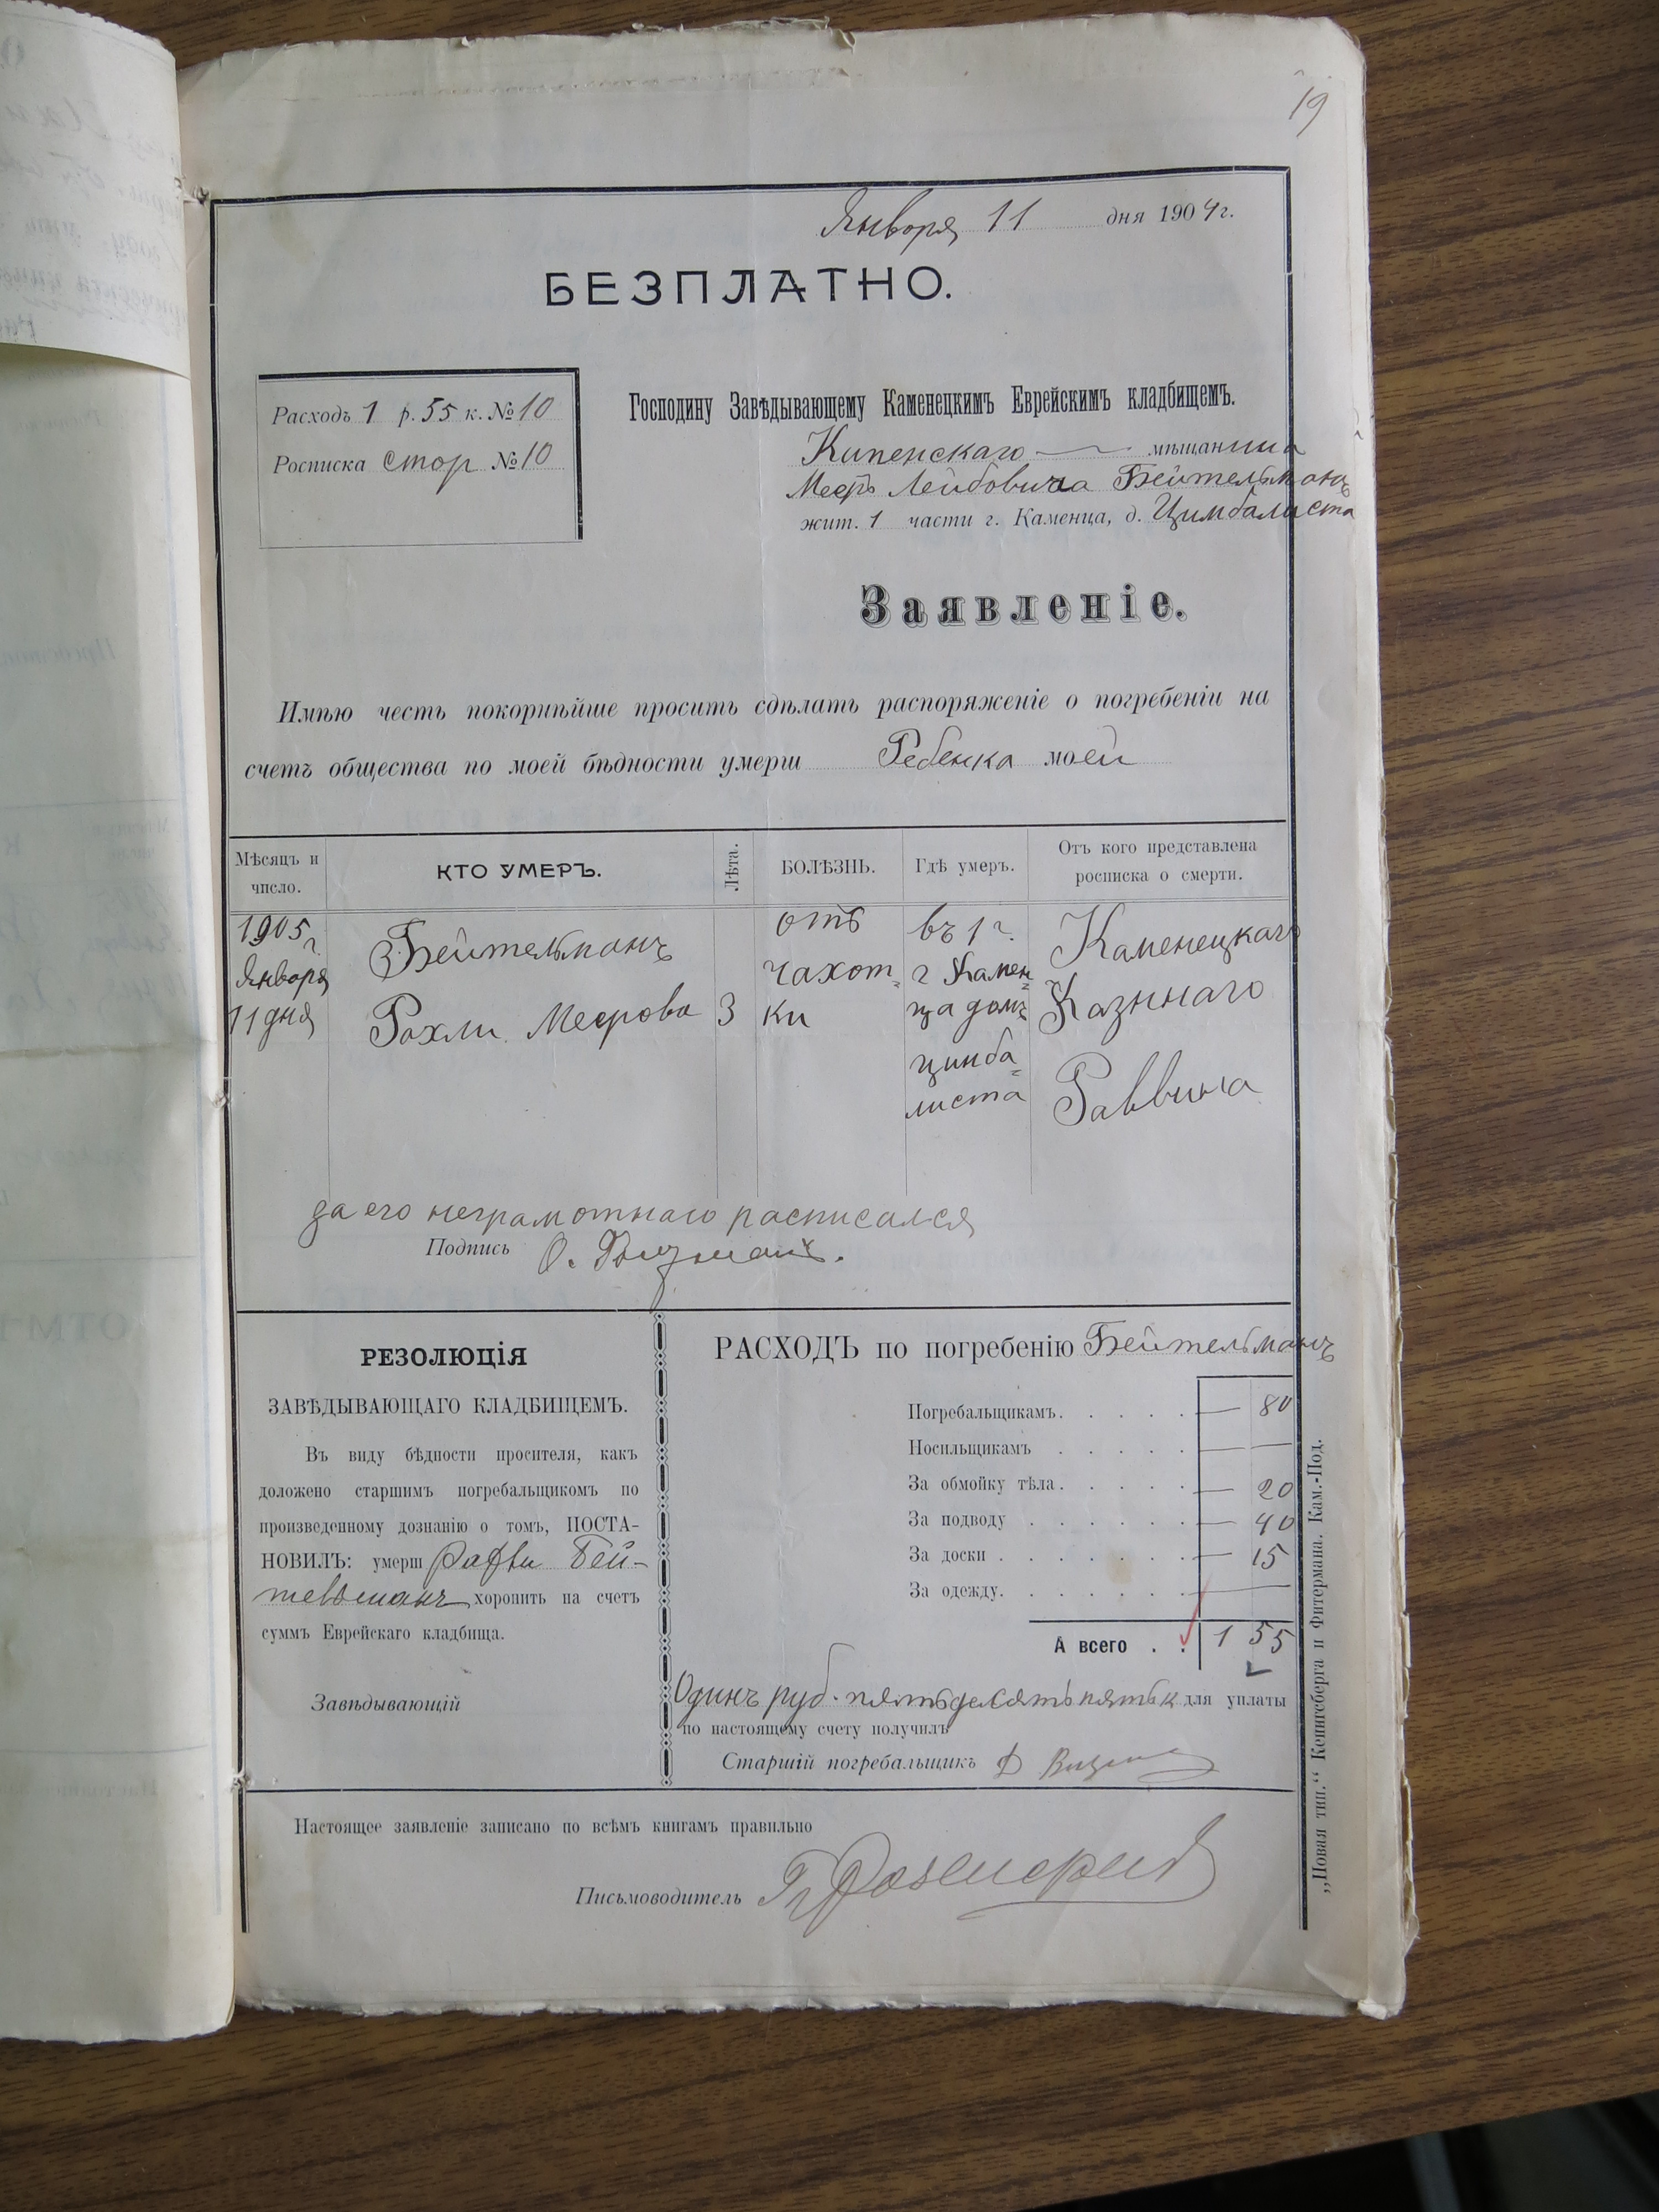 19
Января 11 дня 1904 г.
БЕЗПЛАТНО.
Расходъ 1 р. 55 к. № 10
Росписка стор № 10
Господину Завѣдывающему Каменецкимъ Еврейскимъ кладбищемъ.
Купенскаго мѣщанина
Меер Лейбовича Бейтельманъ
жит. 1 части г. Каменца, д. Цимбалиста
Заявленіе.
Имѣю честь покорнѣйше просить сдѣлать распоряженіе о погребеніи на
счетъ общества по моей бѣдности умерш Ребенка моей
Мѣсяцъ и число.
КТО УМЕРЪ.
Лѣта.
БОЛѢЗНЬ.
Гдѣ умеръ.
Отъ кого представлена росписка о смерти.
1905 г Января 11 дня
Бейтельманъ
Рохли Меерова
3
отъ чахот-ки
въ 1 г. г Камен-ца домъ цинба-листа
Каменецкаго Казннаго Раввина
да его неграмотнаго расписался
Подпись О.
РЕЗОЛЮЦІЯ
ЗАВѢДЫВАЮЩАГО КЛАДБИЩЕМЪ.
Въ виду бѣдности просителя, какъ
доложено старшимъ погребальщикомъ по
произведенному дознанію о томъ, ПОСТА-
НОВИЛЪ: умерш Бей-
тельманъ хоронить на счетъ
суммъ Еврейскаго кладбища.
Завѣдывающій
РАСХОДЪ по погребенію Бейтельманъ
Погребальщикамъ. . . . . — 80
Носильщикамъ . . . . . —
За обмойку тѣла. . . . . — 20
За подводу . . . . . . — 40
За доски . . . . . . . — 15
За одежду. . . . . . . —
А всего . . 1 55
Одинъ руб. пятьдесятъ пять к для уплаты
по настоящему счету получилъ
Старшій погребальщикъ
Настоящее заявленіе записано по всѣмъ книгамъ правильно
Письмоводитель
„Новая тип.“ Кенигсберга и Фитермана. Кам.-Под.